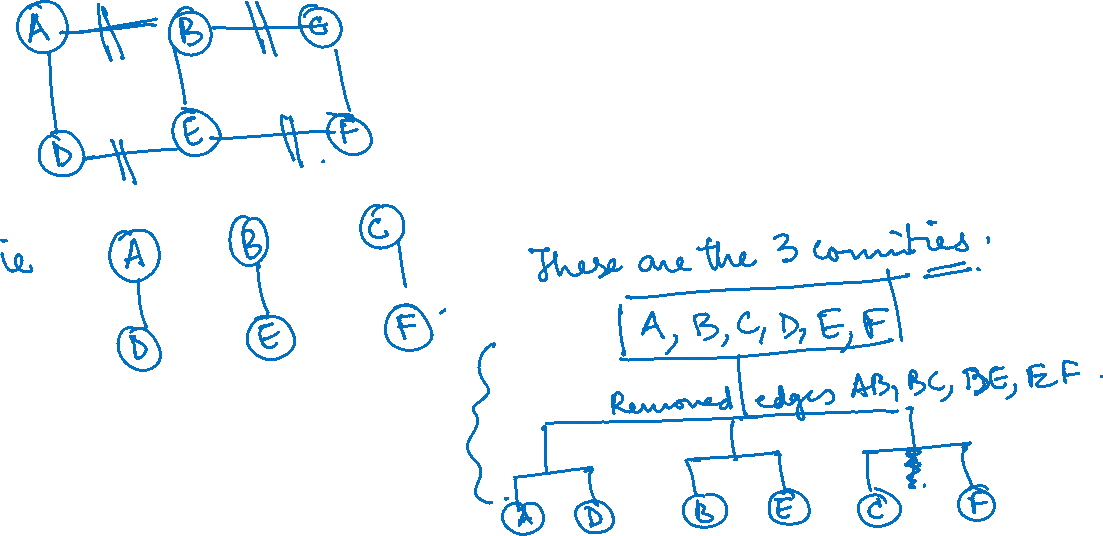 A B C
D E F
ie A B C
D E F
These are the 3 comnities.
A, B, C, D, E, F
Removed edges AB, BC, BE, EF.
A D B E C F